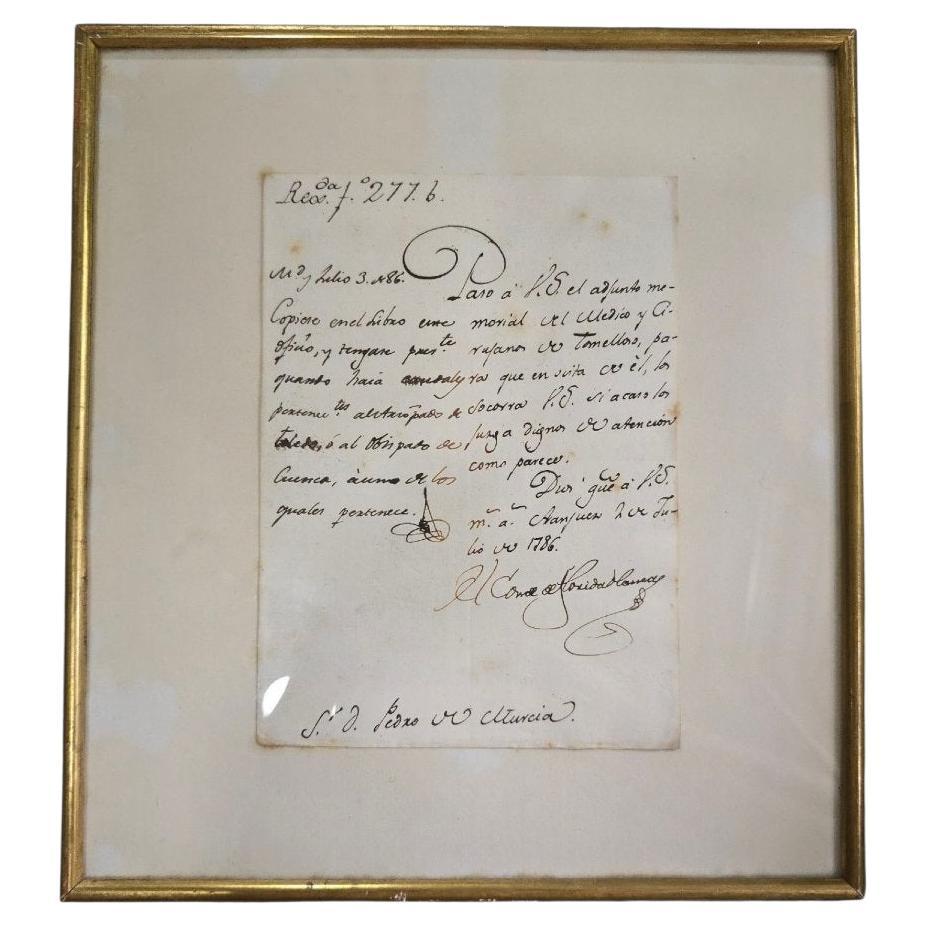 Reg.da f.o 277. b.
Md y Julio 3. de 86.
Copiese en el Libro este
oficio, y tengase pres.te
quanto haia
pertenec.tes al Arzpado de
Toledo, ó al Obispado de
Cuenca, à uno de los
quales pertenece.
Paso â V.S. el adjunto me-
morial del Medico y Ci-
rujanos de Tomelloso, pa-
ra que en vista de èl, los
socorra V.S. si acaso los
juzga dignos de atención
como parece.
Dios gue â V.S.
m.s a.s Aranjuez 2 de Ju-
lio de 1786.
El Conde de Floridablanca
S.r D. Pedro de Murcia.